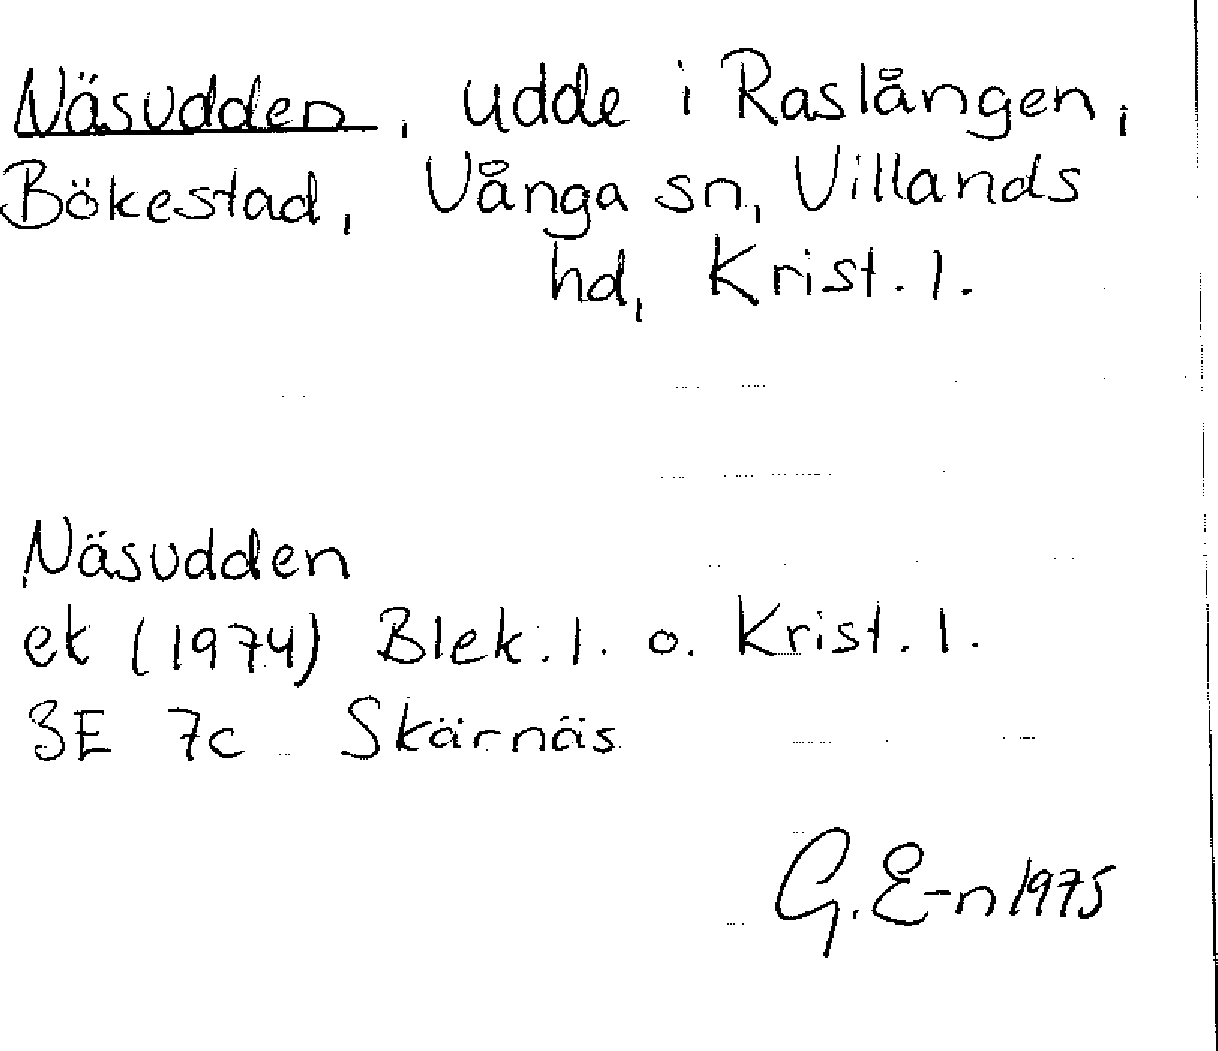 Näsudden, udde i Raslången,
Bökestad, Vånga sn, Villands
hd, Krist. l.
Näsudden
ek (1974) Blek. l. o. Krist. l.
3E 7c Skärnäs
G. E-n 1975